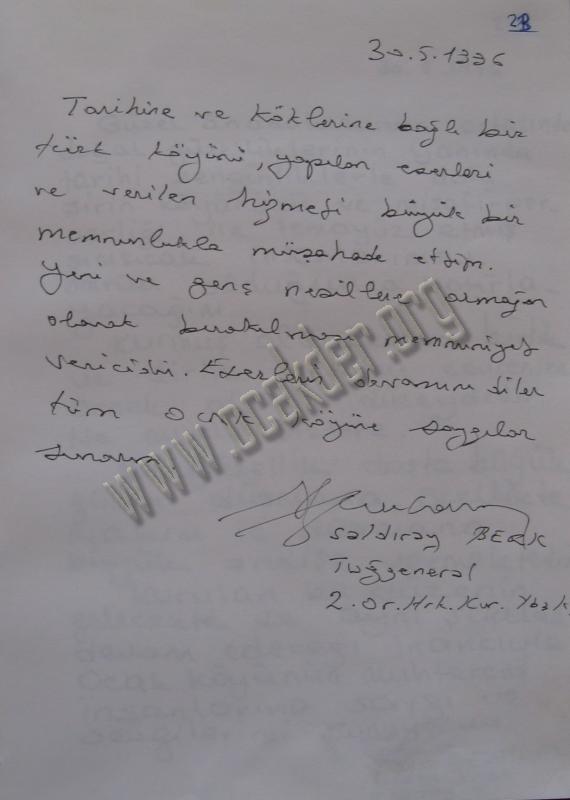 28
30.5.1996
Tarihine ve köklerine bağlı bir
türk köyünü, yapılan eserleri
ve verilen hizmeti büyük bir
memnunlukla müşahade ettim.
Yeni ve genç nesillere armağan
olarak bırakılması memnuniyet
vericidir. Eserlerin devamını diler
tüm ocak köyüne saygılar
sunarım.
Saldıray BERK
Tuğgeneral
2. Or. Hrk. Kur. Ybşk
www.ocakder.org